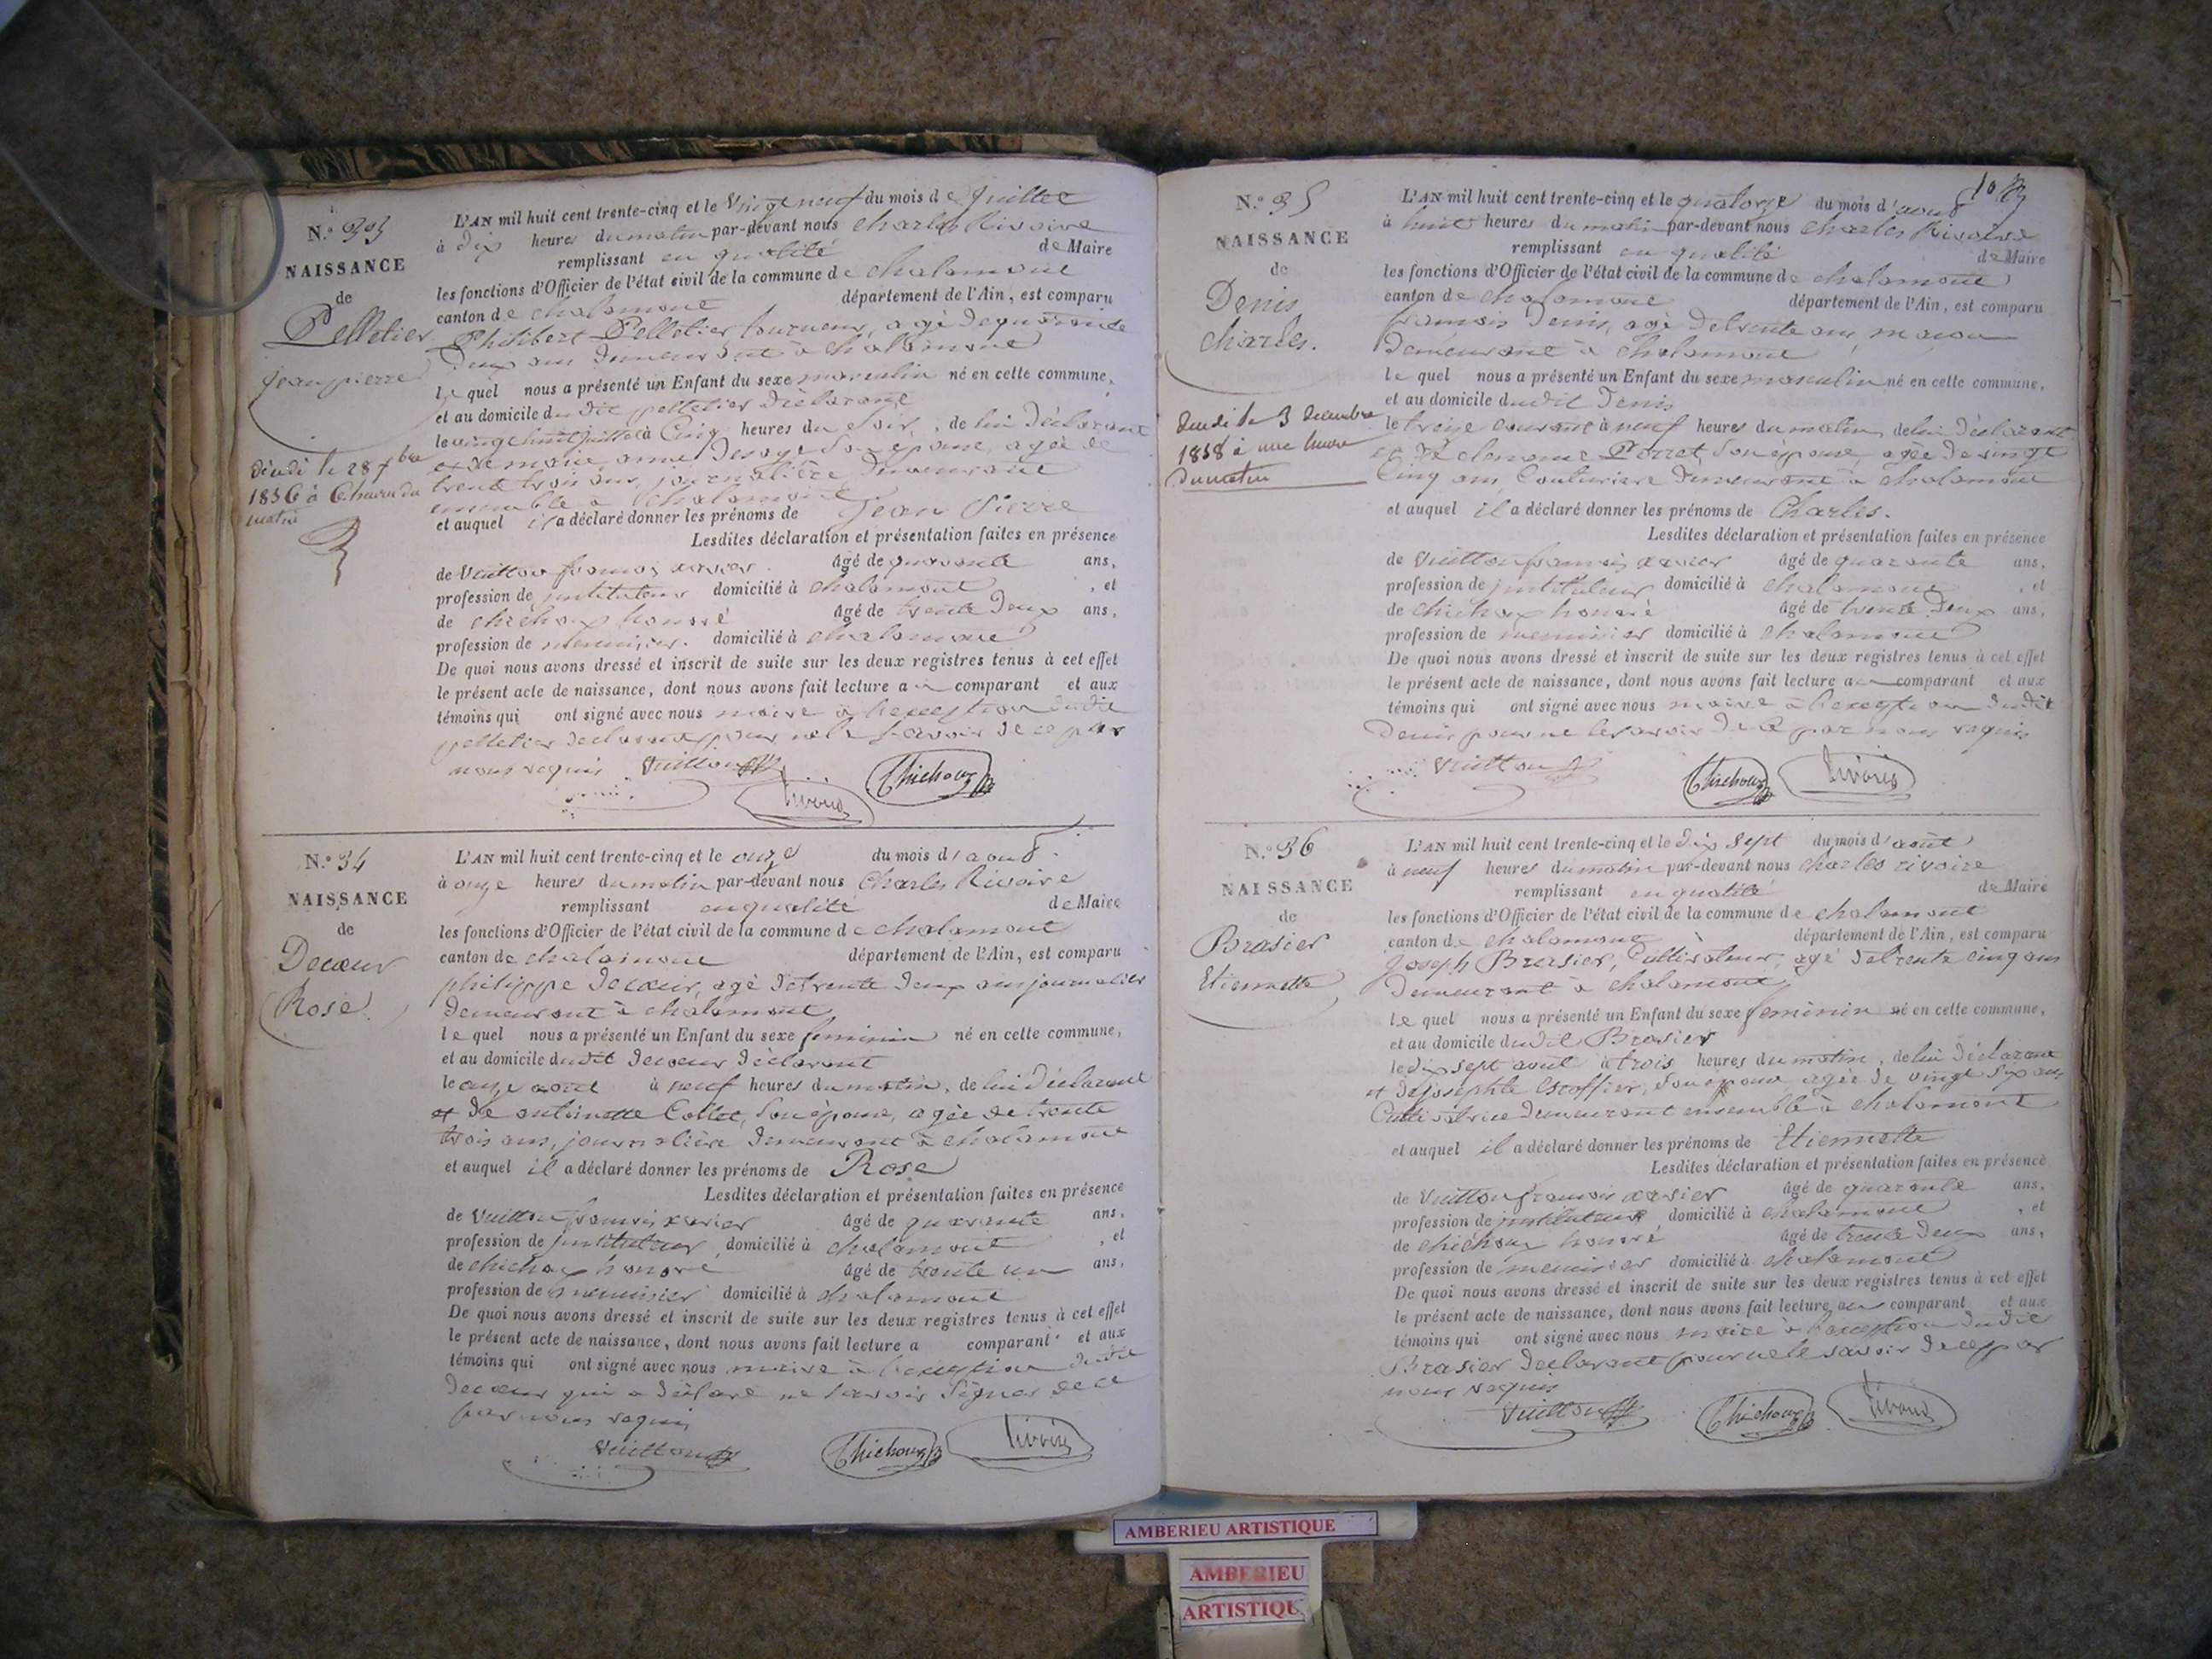 N.° 33
NAISSANCE
de
Pelletier
jean pierre
décédé le 28 7bre
1836 à 6 heures du
matin
L'AN mil huit cent trente-cinq et le vingt neuf du mois de juillet
à dix heures du matin par-devant nous charles Rivoire
remplissant en qualité de Maire
les fonctions d'Officier de l'état civil de la commune de chalamont
canton de chalamont département de l'Ain, est comparu
Philibert Pelletier, tourneur, agé de quarante
deux ans demeurant à chalamont
le quel nous a présenté un Enfant du sexe masculin né en cette commune,
et au domicile du dit pelletier déclarant
le vingt huit juillet à cinq heures du soir, de lui déclarant
et de marie anne son épouse, agée de
trente trois ans, journalière demeurant
ensemble à chalamont
et auquel il a déclaré donner les prénoms de Jean Pierre
Lesdites déclaration et présentation faites en présence
de Vuitton françois xavier âgé de quarante ans,
profession de instituteur domicilié à chalamont, et
de chichoux honoré âgé de trente deux ans,
profession de menuisier domicilié à chalamont
De quoi nous avons dressé et inscrit de suite sur les deux registres tenus à cet effet
le présent acte de naissance, dont nous avons fait lecture au comparant et aux
témoins qui ont signé avec nous maire à l'exception dudit
pelletier declarant pour ne le savoir de ce par
nous requis Vuitton Chichoux
Rivoire
N.° 34
NAISSANCE
de
Decœur
Rose
L'AN mil huit cent trente-cinq et le onze du mois d'aout
à onze heures du matin par-devant nous Charles Rivoire
remplissant en qualité de Maire
les fonctions d'Officier de l'état civil de la commune de chalamont
canton de chalamont département de l'Ain, est comparu
philippe decœur, agé de trente deux ans journalier
demeurant à chalamont
le quel nous a présenté un Enfant du sexe feminin né en cette commune,
et au domicile dudit decœur déclarant
le onze aout à neuf heures du matin, de lui déclarant
et de antoinette Collet, son épouse, agée de trente
trois ans, journalière demeurant à chalamont
et auquel il a déclaré donner les prénoms de Rose
Lesdites déclaration et présentation faites en présence
de Vuitton françois xavier âgé de quarante ans,
profession de instituteur, domicilié à chalamont, et
de chichoux honoré âgé de trente un ans,
profession de menuisier domicilié à chalamont
De quoi nous avons dressé et inscrit de suite sur les deux registres tenus à cet effet
le présent acte de naissance, dont nous avons fait lecture a comparant et aux
témoins qui ont signé avec nous maire à l'exception dudit
decœur qui a déclaré ne savoir signer de ce
par nous requis
Vuitton Chichoux Rivoire
N.° 35
NAISSANCE
de
Denis
charles.
décédé le 3 decembre
1838 à une heure
du matin
L'AN mil huit cent trente-cinq et le quatorze du mois d'aout
à huit heures du matin par-devant nous Charles Rivoire
remplissant en qualité de Maire
les fonctions d'Officier de l'état civil de la commune de chalamont
canton de chalamont département de l'Ain, est comparu
françois Denis, agé de trente ans, maçon
demeurant à Chalamont
le quel nous a présenté un Enfant du sexe masculin né en cette commune,
et au domicile dudit Denis
le treize courant à neuf heures du matin, de lui déclarant
et de clemence Perret, son épouse, agée de vingt
cinq ans, Couturiere demeurant à chalamont
et auquel il a déclaré donner les prénoms de Charles.
Lesdites déclaration et présentation faites en présence
de Vuitton françois xavier âgé de quarante ans,
profession de instituteur domicilié à chalamont, et
de chichoux honoré âgé de trente deux ans,
profession de menuisier domicilié à chalamont
De quoi nous avons dressé et inscrit de suite sur les deux registres tenus à cet effet
le présent acte de naissance, dont nous avons fait lecture au comparant et aux
témoins qui ont signé avec nous maire à l'exception dudit
Denis pour ne le savoir de ce par nous requis
Vuitton Chichoux Rivoire
N.° 36
NAISSANCE
de
Brasier
Etiennette
L'AN mil huit cent trente-cinq et le dix sept du mois d'août
à neuf heures du matin par-devant nous charles rivoire
remplissant en qualité de Maire
les fonctions d'Officier de l'état civil de la commune de chalamont
canton de chalamont département de l'Ain, est comparu
Joseph Brasier, Cultivateur, agé de trente cinq ans
demeurant à chalamont
le quel nous a présenté un Enfant du sexe feminin né en cette commune,
et au domicile dudit Brasier
le dix sept aout à trois heures du matin, de lui déclarant
et de josephte Escoffier, son épouse, agée de vingt six ans
Cultivatrice demeurant ensemble à chalamont
et auquel il a déclaré donner les prénoms de Etiennette
Lesdites déclaration et présentation faites en présence
de Vuitton françois xavier âgé de quarante ans,
profession de instituteur, domicilié à chalamont, et
de chichoux honoré âgé de trente deux ans,
profession de menuisier domicilié à chalamont
De quoi nous avons dressé et inscrit de suite sur les deux registres tenus à cet effet
le présent acte de naissance, dont nous avons fait lecture au comparant et aux
témoins qui ont signé avec nous maire à l'exception dudit
Brasier declarant pour ne le savoir de ce par
nous requis
Vuitton Chichoux Rivoire
AMBERIEU ARTISTIQUE
AMBERIEU
ARTISTIQUE